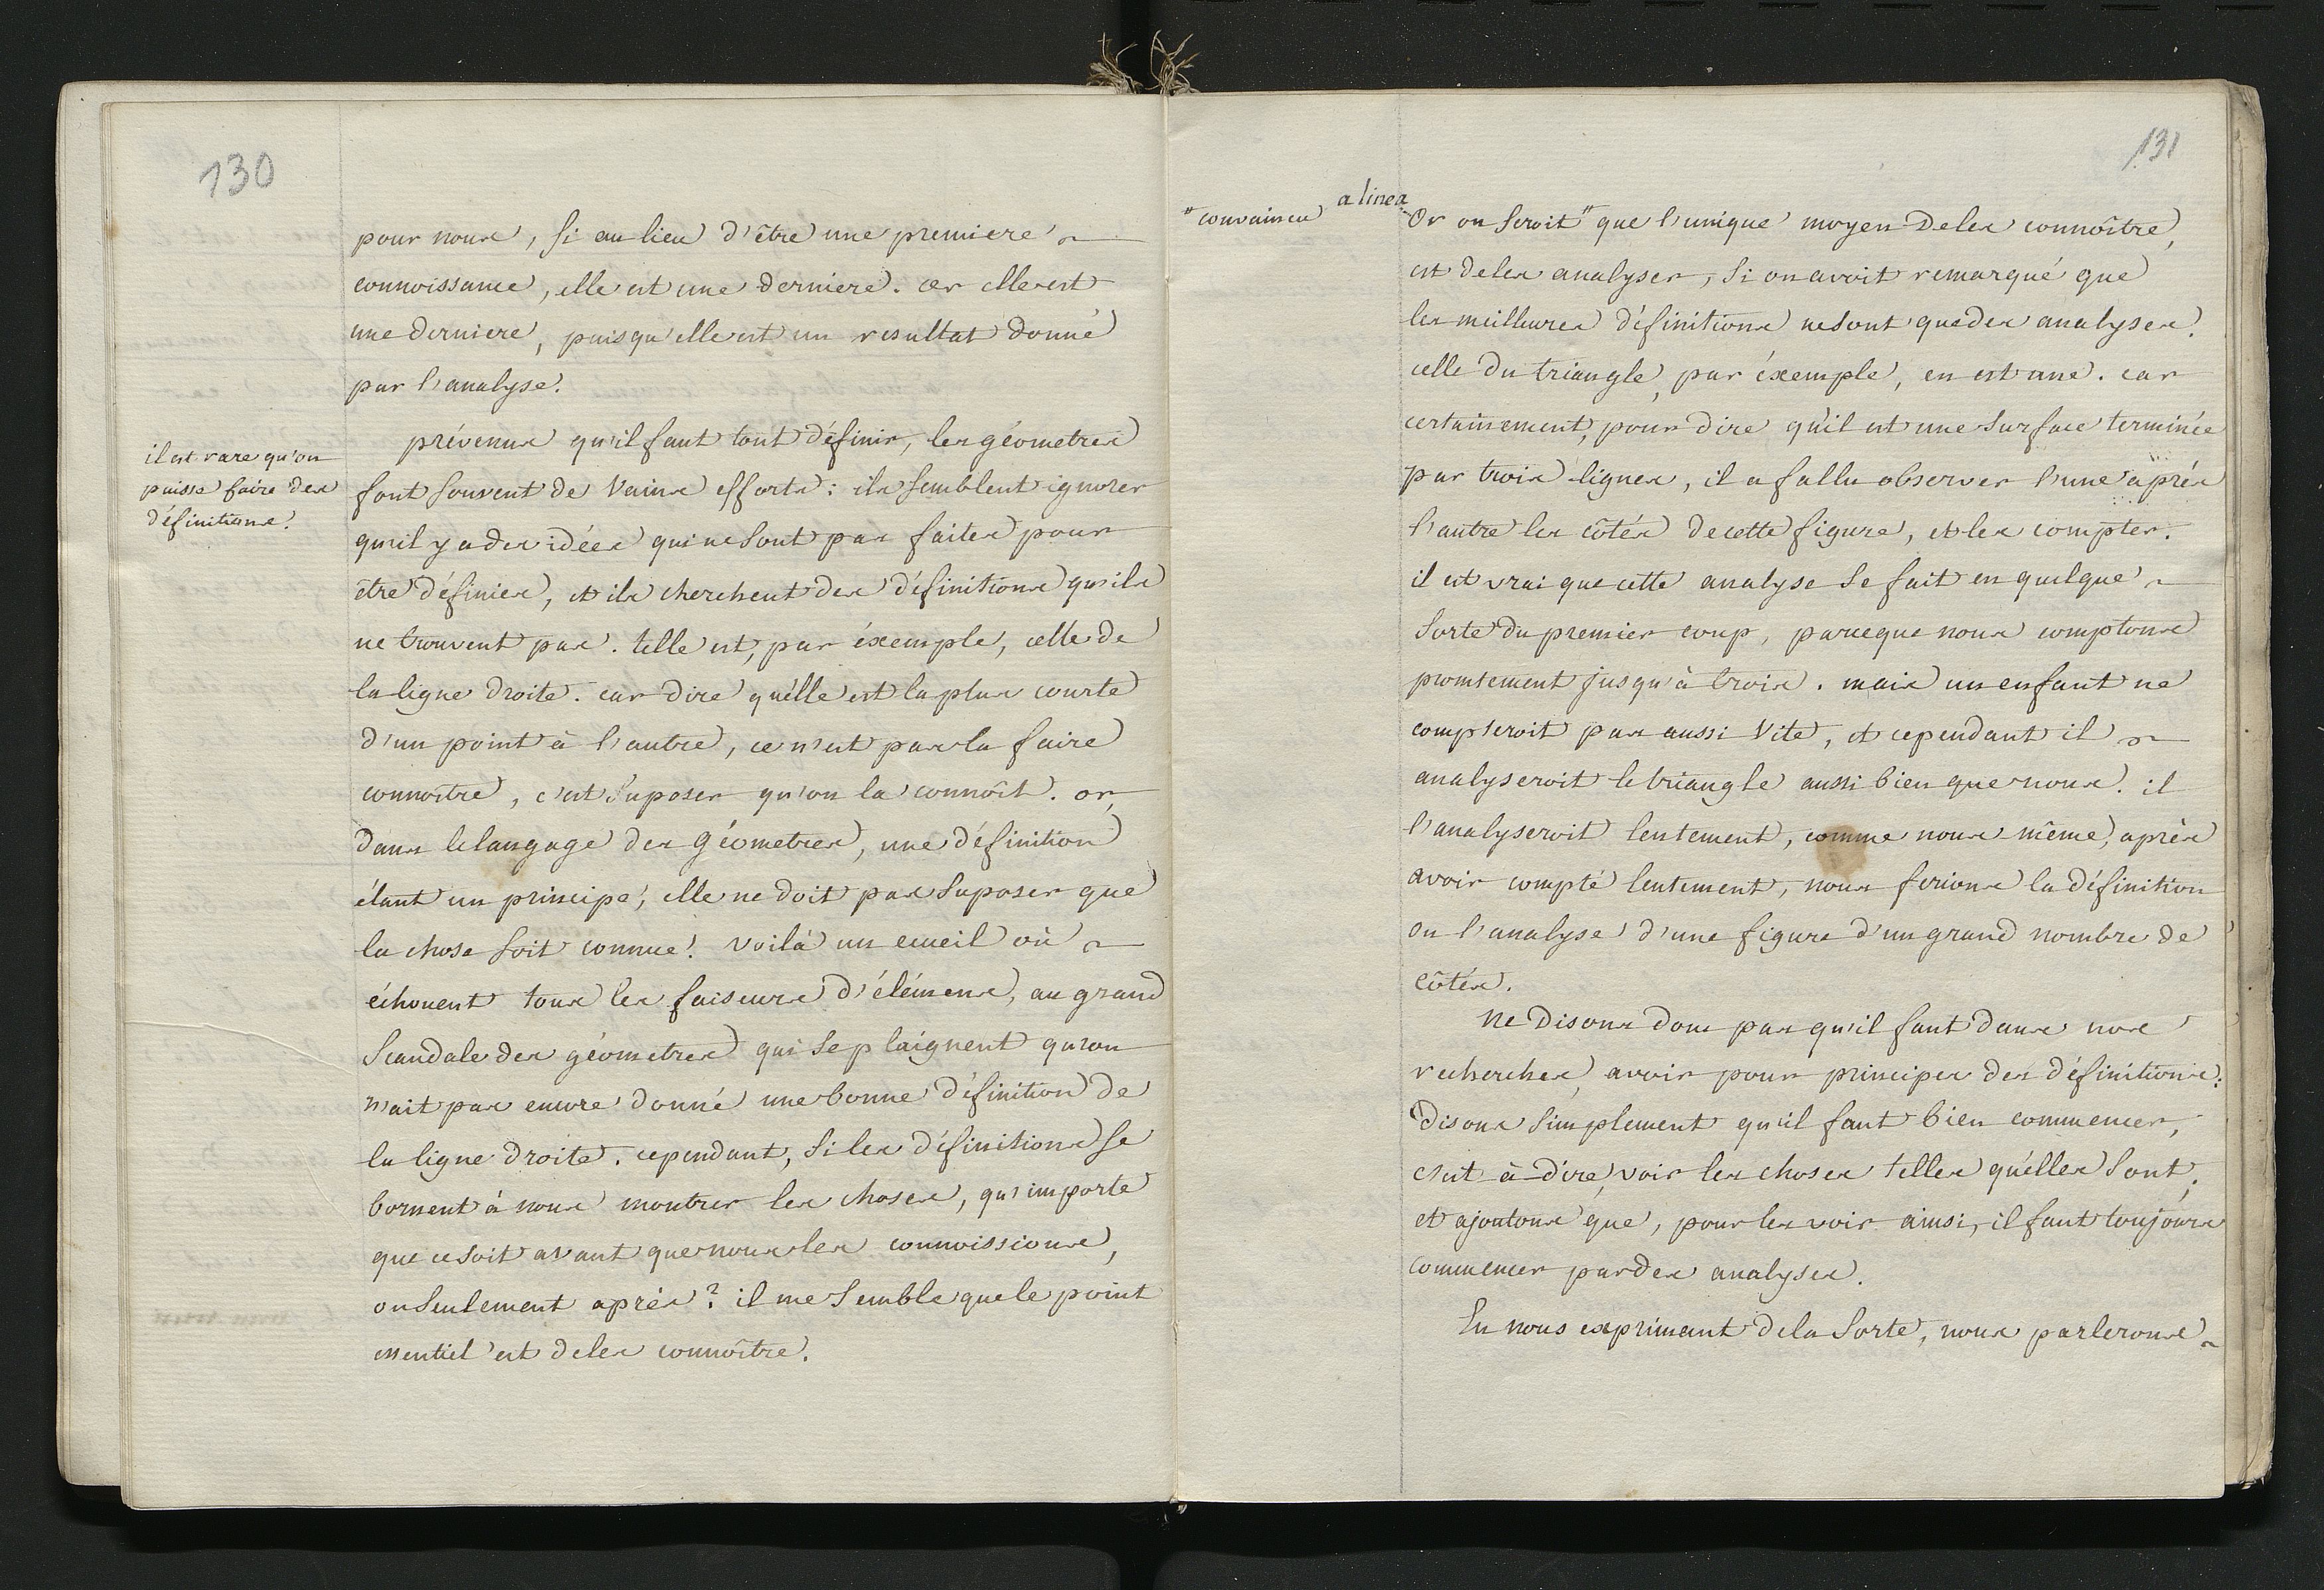 130
pour nous, si au lieu d'être une premiere
connoissance, elle est une derniere. or elle est
une derniere, puisqu'elle est un resultat donné
par l'analyse.
il est rare qu'on
puisse faire des
définitions.
prévenus qu'il faut tout définir, les géometres
font souvent de vains efforts: ils semblent ignorer
qu'il y a des idées qui ne sont pas faites pour
être définies, et ils cherchent des définitions qu'ils
ne trouvent pas. telle est, par éxemple, celle de
la ligne droite. car dire qu'elle est la plus courte
d'un point à l'autre, ce n'est pas la faire
connoître, c'est suposer qu'on la connoît. or,
dans le langage des géometres, une définition
étant un principe, elle ne doit pas suposer que
la chose soit connue. voilà un ecueil où
échouent tous les faiseurs d'élémens, au grand
scandale des géometres qui se plaignent qu'on
n'ait pas encore donné une bonne définition de
la ligne droite. cependant, si les définitions se
bornent à nous montrer les choses, qu'importe
que ce soit avant que nous les connoissions,
ou seulement après? il me semble que le point
essentiel est de les connoître.
131
a linea
" convaincu
Or on seroit " que l'unique moyen de les connoître,
est de les analyser, si on avoit remarqué que
les meilleures définitions ne sont que des analyses.
celle du triangle, par éxemple, en est une. car
certainement, pour dire qu'il est une surface terminée
par trois lignes, il a fallu observer l'une après
l'autre les côtés de cette figure, et les compter.
il est vrai que cette analyse se fait en quelque
sorte du premier coup, parceque nous comptons
promtement jusqu'à trois. mais un enfant ne
compteroit pas aussi vite, et cependant il
analyseroit le triangle aussi bien que nous. il
l'analyseroit lentement, comme nous même, après
avoir compté lentement, nous ferions la définition
ou l'analyse d'une figure d'un grand nombre de
côtés.
ne disons donc pas qu'il faut dans nos
recherches, avoir pour principes des définitions:
disons simplement qu'il faut bien commencer,
c'est à-dire, voir les choses telles qu'elles sont;
et ajoutons que, pour les voir ainsi, il faut toujours
commencer par des analyses.
En nous exprimant de la sorte, nous parlerons